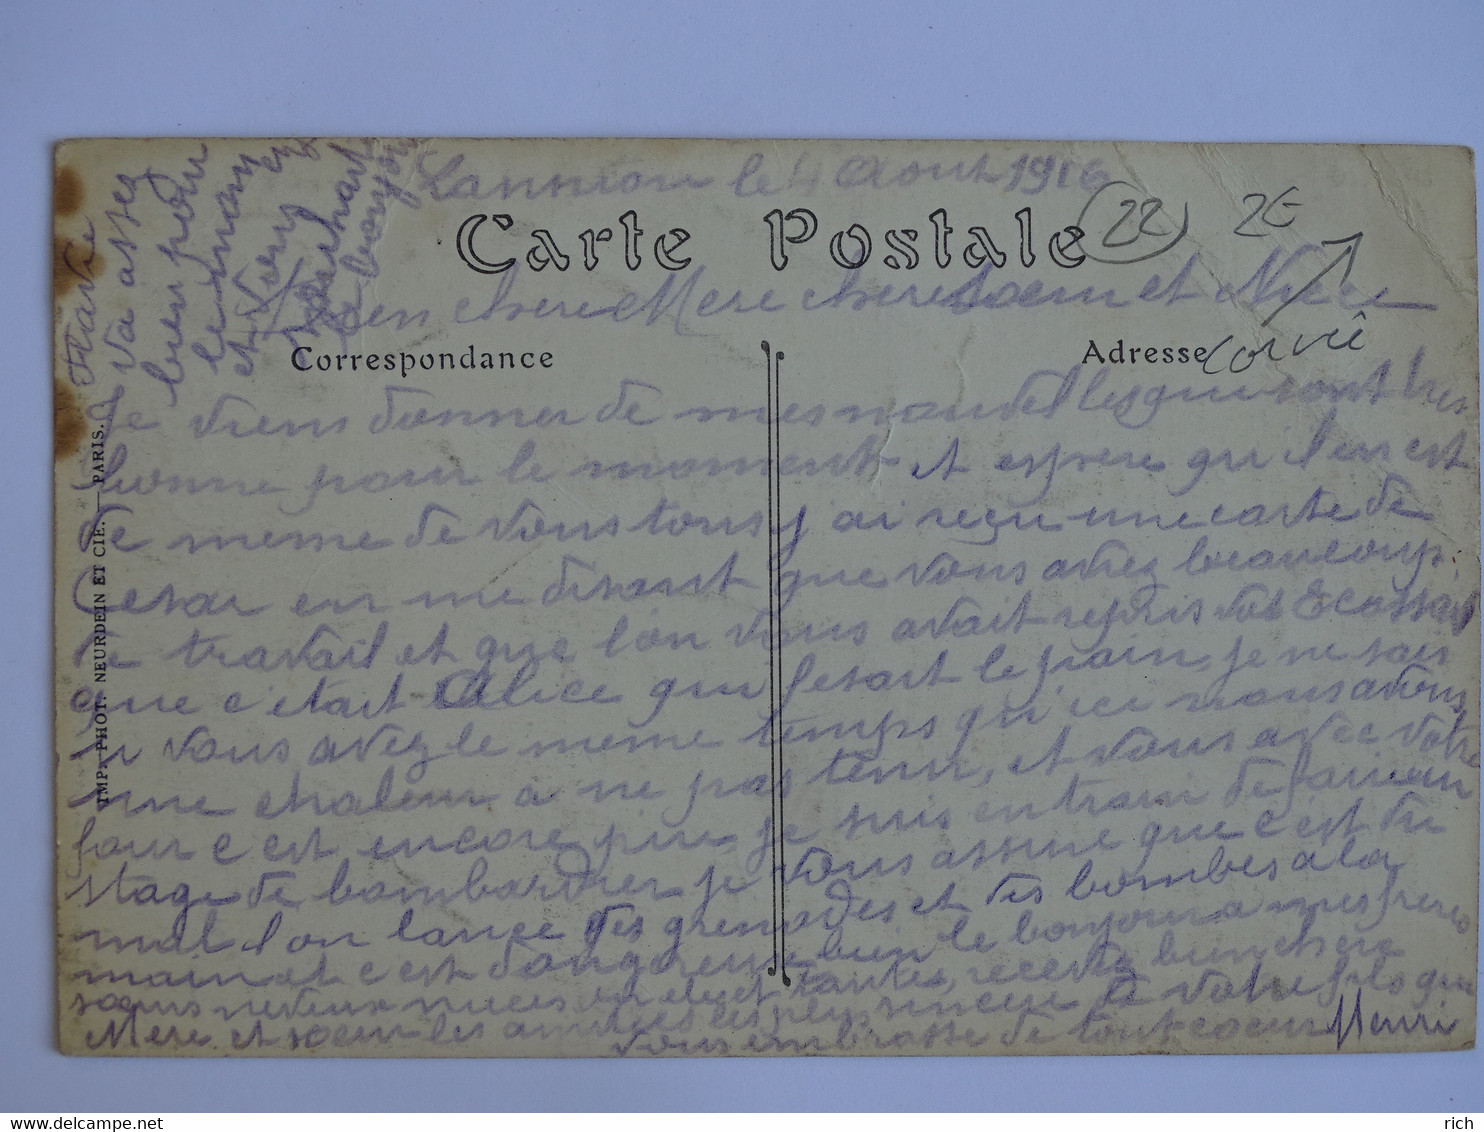 Lannion le 4 Aout 1916
Carte Postale
22
2€
Bien chere Mere chere soeur et Niece
Correspondance
Adresse
corvée
Je viens donner de mes nouvelles qui sont tres
bonne pour le moment et espere qu il en est
de meme de vous tous j ai reçu une carte de
Cesar en me disant que vous aviez beaucoup
de travail et que l on vous avait repris vos Ecossais
que c etait Alice qui fesait le pain, je ne sais
si vous avez le meme temps qu ici nous avons
une chaleur a ne pas tenir, et vous avec votre
four c est encore pire je suis en train de faire un
stage de bombardier je vous assure que c'est du
mal l on lance des grenades et des bombes a la
main et c est dangereux bien le bonjour a mes freres
soeurs neveux nieces et tantes, recevez bien chere
Mere et soeur les amities les plus sincere de votre fils qui
vous embrasse de tout coeur Henri
va assez
bien pour
le
et
bonjour
IMP. PHOT. NEURDEIN ET CIE. — PARIS.
rich